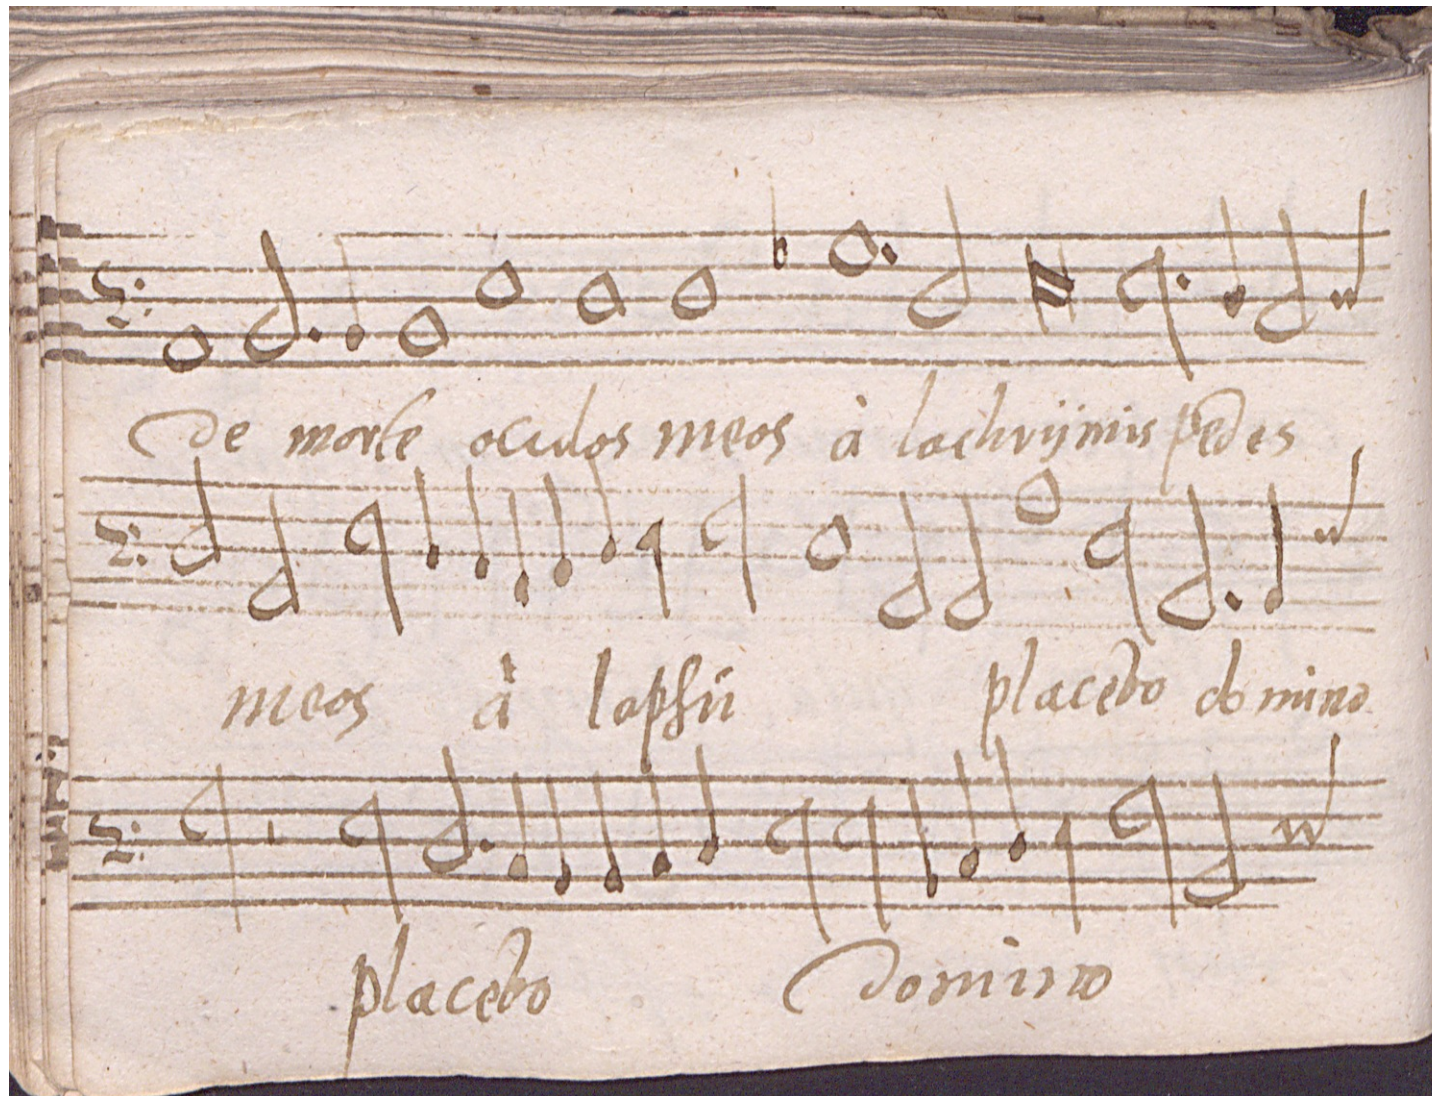 De morte oculos meos à lachrijmis pedes
meos à lapsu
placebo domino
placebo Domino